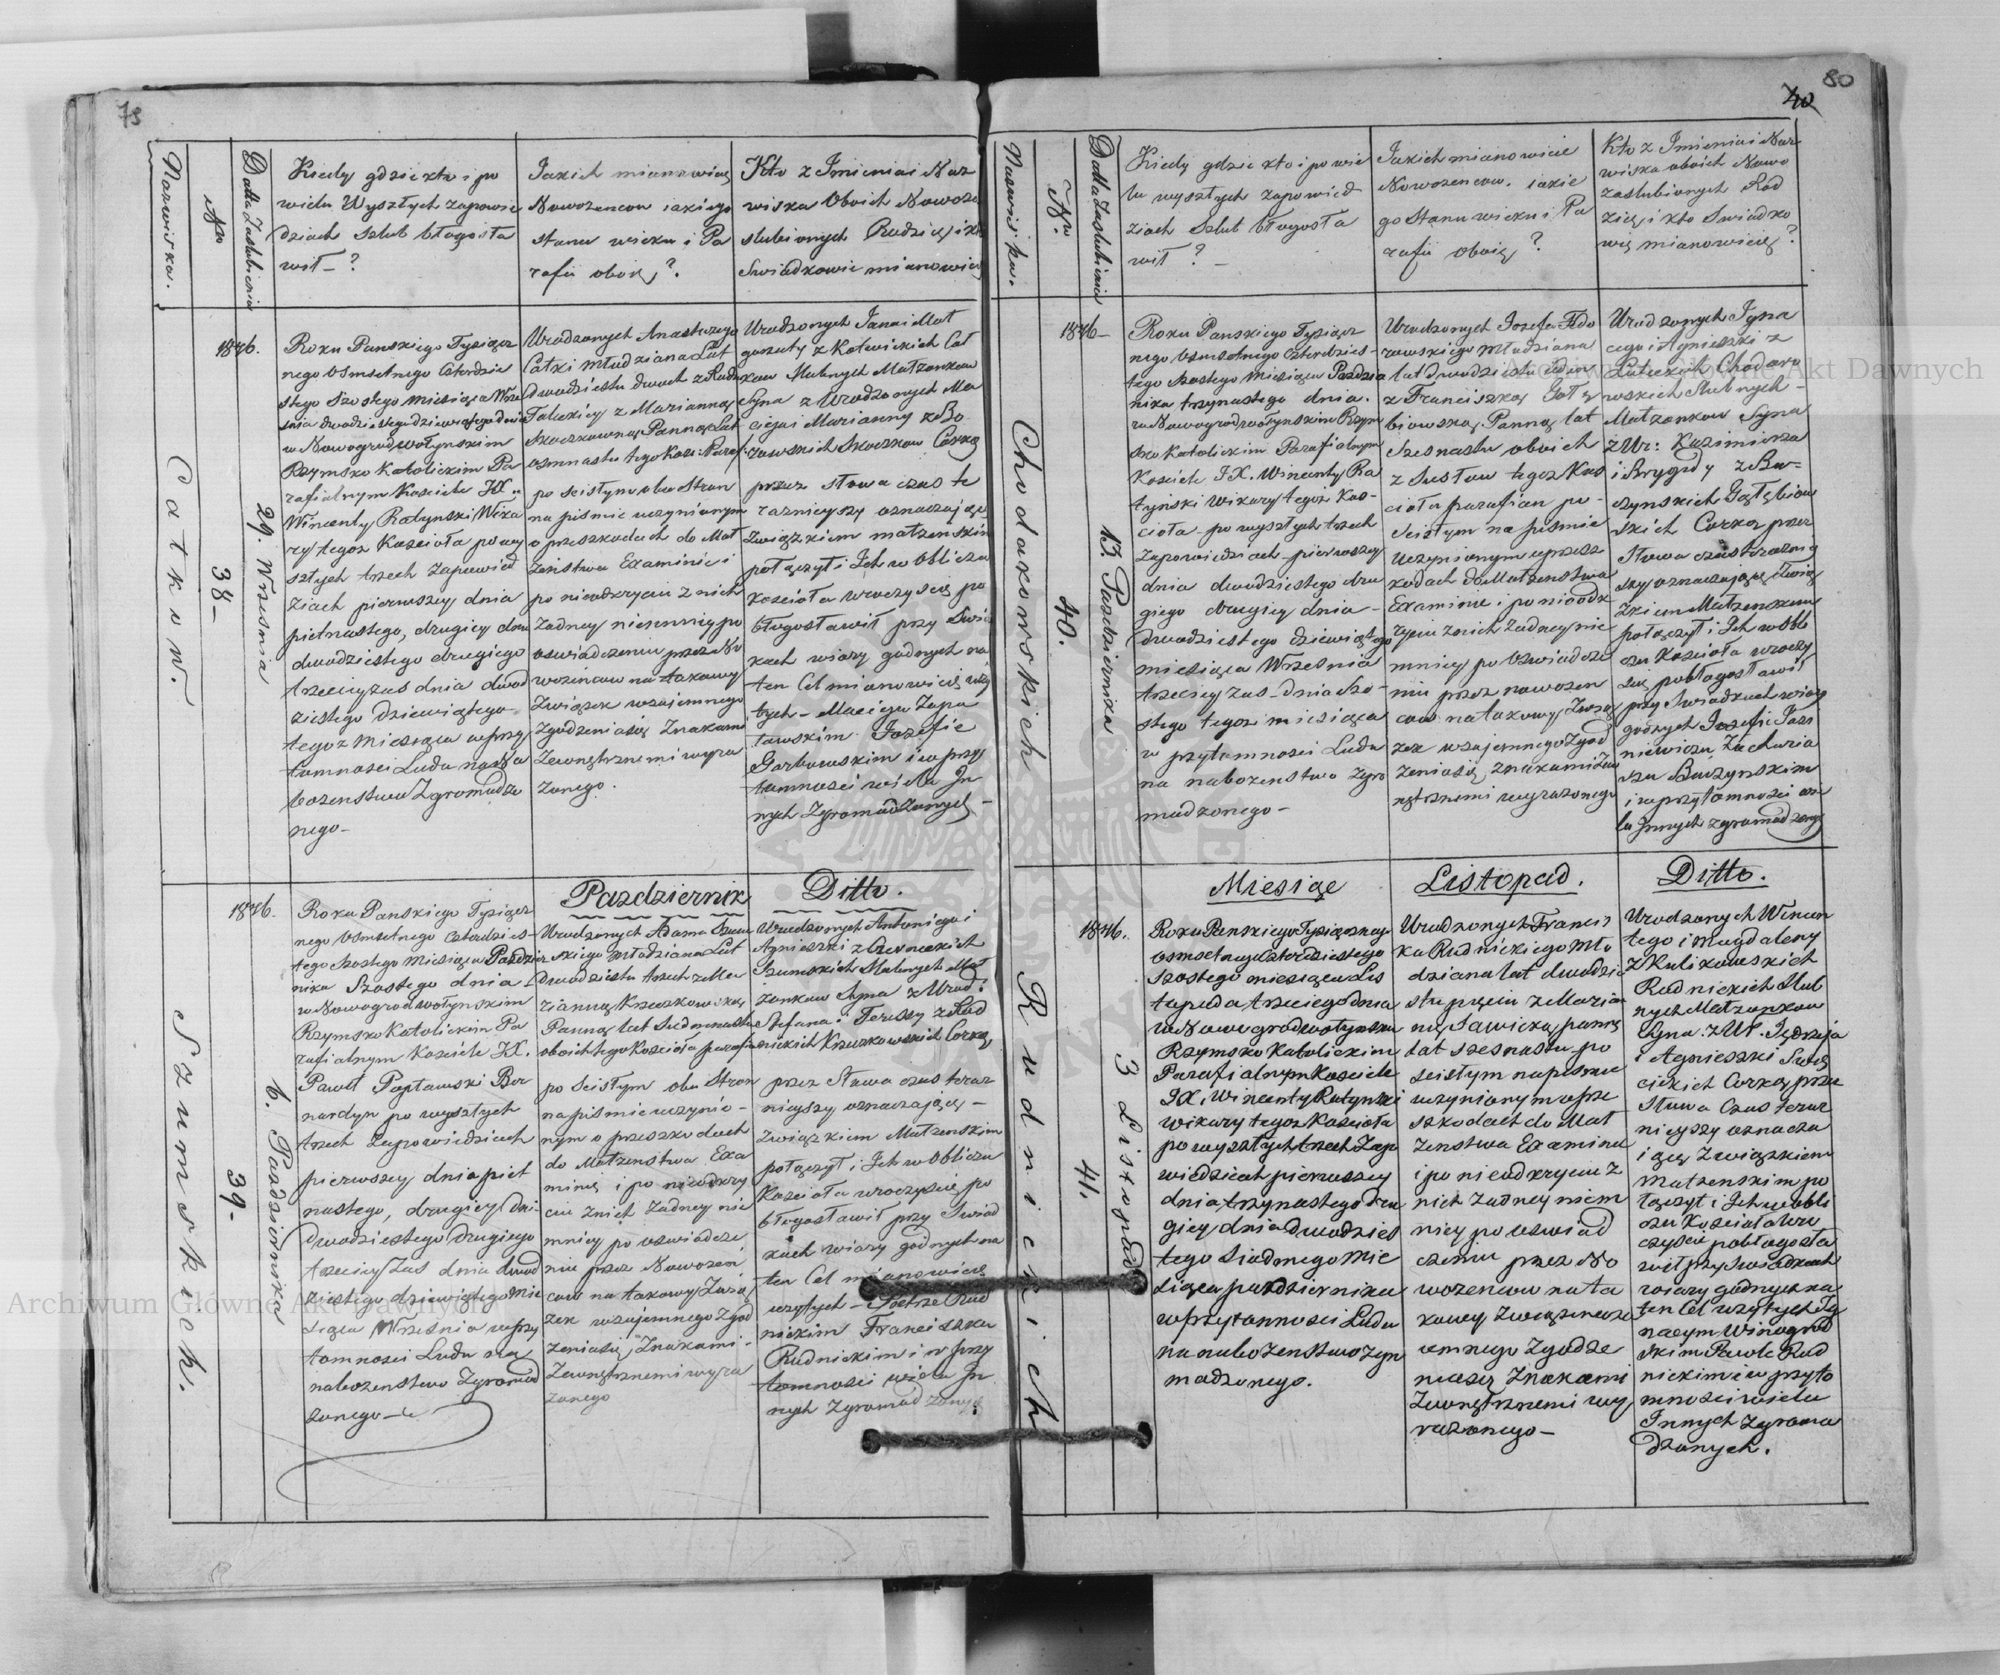 79
Nazwiska.
Nro
Datta Zaslubienia
Kiedy gdzie kto i po
wielu Wyszłych zapowie
dziach szlub błogosła
wił – ?
Jakich mianowicię
Nowozencow iakiego
stanu wieku i Pa
rafii oboię ?.
Kto z Jmienia i Naz
wiska Oboich Nowoza
slubionych Rodzicę i kto
Swiadkowie mianowicię
Catkow.
38–
29. Wrzesnia
1846.
Roku Panskiego Tysiącz
nego Osmsetnego czterdzie
stego szostego miesiąca Wrze
snia dwudziestego dziewiątego dnia
w Nowogrodwołynskim
Rzymsko Katolickim Pa
rafialnym Kosciele JX.
Wincenty Ratynski Wika
ry tegoz Koscioła po wy
szłych trzech zapowied
ziach pierwszey dnia
pietnastego, drugiey dnia
dwudziestego drugiego
trzeciey zas dnia dwud
ziestego dziewiątego
tegoz miesiąca w przy
tomnosci Ludu na na
bozenstwo Zgromadzo
nego –
Urodzonych Anastazego
Catki młodziana Lat
dwudziestu dwoch z Rudni
z Marianną
Skoczkowną Panną Lat
osmnastu tego Kosc: Paraf:
po scisłym obu Stron
na pismie uczynionym
o przeszkodach do Mał
zenstwa Examinie i
po nieodkryciu z nich
zadney niemniey po
oswiadczeniu przez No
wozencow na takowy
Związek wzajemnego
zgodzenia się Znakami
Zewnętrznemi wyra
zonego.
Urodzonych Jana i Mał
gorzaty z Kotwickich Cat
kow slubnych Małzonkow
Syna z Urodzonych Ma
cieja i Marianny z Bo
Skoczkow Corką
przez słowa czas te
razniejszy oznaczające
związkiem małzenskim
połączył i Jch w Obliczu
Koscioła uroczyscię po
błogosławił przy Swiad
kach wiary godnych na
ten Cel mianowicię uzy
tych – Macieju Zapa
Jozefie
Garbowskim i w przy
tomnosci wielu Jn
nych Zgromadzonych –
Szumskich.
39–
6. Pazdziernika
1846.
Roku Panskiego Tysiącz
nego Osmsetnego czterdzies
tego szostego miesiąca Pazdzier
nika szostego dnia
w Nowogrodwołynskim
Rzymsko Katolickim Pa
rafialnym Kosciele JX.
Paweł Ber
nardyn po wyszłych
trzech Zapowiedziach
pierwszey dnia piet
nastego, drugiey dnia
dwudziestego drugiego
trzeciey zas dnia dwud
ziestego dziewiątego mie
siąca Wrzesnia w przy
tomnosci Ludu na
nabozenstwo Zgromad
zonego –
Pazdziernik
Urodzonych Adama Szum
skiego młodziana Lat
dwudziestu trzech z Ma
rianną Kruszkowską
Panną lat siedmnastu
oboich tego Koscioła parafia
po scisłym obu Stron
na pismie uczynio–
nym o przeszkodach
do Małzenstwa Exa
minię i po nieodkry
ciu z nich zadney nie
mniey po oswiadcze
niu przez Nowozen
cow na takowy Zwią
zek wzajemnego Zgod
zenia się Znakami
Zewnętrznemi wyra
zonego
Ditto.
Urodzonych Antoniego i
Agnieszki z Czerneckich
Szumskich slubnych Mał
zonkow Syna z Urod:
Stefana i Teressy z Rud
nickich Kruszkowskich Corką
przez Słowa czas teraz
nieyszy oznaczającę –
Związkiem Małzenskim
połączył i Jch w Obliczu
Koscioła uroczyscie po
błogosławił przy Swiad
kach wiary godnych na
ten Cel mianowicię
uzytych – Pietrze Rud
nickim Franciszku
Rudnickim i w przy
tomnosci wielu Jn
nych Zgromadzonych
80
40
Nazwiska.
Nro.
Datta Zaslubienia
Kiedy gdzie kto i po wie
lu wyszłych zapowied
ziach Szlub błogosła
wił ? –
Jakich mianowicie
Nowozencow. iakie
go Stanu wieku i Pa
rafii oboię ?
Kto z Jmienia i Naz
wiska oboich Nowo
zaslubionych Rod
zicę i kto Swiadko
wię mianowicię ?
Chodakowskich
40.
13. Pazdziernika
1846–
Roku Panskiego Tysiącz
nego Osmsetnego czterdzies
tego szostego miesiąca Pazdzier
nika trzynastego dnia.
w Nowogrodwołynskim Rzym
sko Katolickim Parafialnym
Kosciele JX. Wincenty Ra
tynski Wikary tegoz Kos–
cioła po wyszłych trzech
Zapowiedziach pierwszey
dnia dwudziestego dru
giego drugiey dnia–
dwudziestego dziewiątego
miesiąca Wrzesnia
trzeciey zas dnia szo–
stego tegoz miesiąca
w przytomnosci Ludu
na nabozenstwo Zgro
madzonego –
Urodzonych Jozefa Chodo
rowskiego Młodziana
lat dwudziestu
z Franciszką Gołę
biowską Panną lat
Szesnastu oboich
z Susłow tegoz Kos
cioła parafian po–
scisłym na pismie
uczynionym o przesz
kodach do Małzenstwa
Examinie i po nieodk
ryciu z nich zadney nie
mniey po oswiadcze
niu przez nowozen
cow na takowy Zwią
zek wzajemnego Zgod
zenia się, znakami Zew
nętrznemi wyrazonego
Urodzonych Jgna
cego i Agnieszki z
Chodaro
wskich slubnych–
Małzonkow Syna
z Ur: Kazimierza
i Brygidy z Ba–
szynskich Gołębiow
skich Corką przez
Słowa czas terazniej
szy oznaczającę Zwią
zkiem Małzenskim
połączył i Jch w obli
czu Koscioła uroczy
scię pobłogosławił
przy Swiadkach wiary
godnych Jozefie Jasi
niewiczu Zacharia
szu Baszynskim
i w przytomnosci wie
lu Jnnych zgromadzonych
Rudnickich
41.
3 Listopada
1846.
Miesiąc
Roku Panskiego Tysiącznego
osmsetnego czterdziestego
szostego miesiąca Lis
topada trzeciego dnia
w Nowogrodwołynskim
Rzymsko Katolickim
Parafialnym Kosciele
JX. Wincenty Ratynski
wikary tegoz Koscioła
po wyszłych trzech Zapo
wiedziach pierwszey
dnia trzynastego dru
giey dnia dwudzies
tego siodmego mie
siąca pazdziernika
w przytomnosci Ludu
na nabozenstwo zgro
madzonego.
Listopad.
Urodzonych Francisz
ka Rudnickiego Mło
dziana lat dwudzie
stu pięciu z Marian
ną Sawicką panną
lat szesnastu po
scisłym na pismie
uczynionym o prze
szkodach do Mał
zenstwa Examinie
i po nieodkryciu z
nich zadney niem
niey po oswiad
czeniu przez No
wozencow na ta
kowy Związek wza
iemnego Zgodze
nia się Znakami
Zewnętrznemi wy
razonego –
Ditto.
Urodzonych Wincen
tego i Magdaleny
z Kulikowskich
Rudnickich slub
nych Małzonkow
Syna. z Ur. Jędrzeja
i Agnieszki Sawi
ckich Corką przez
słowa Czas teraz
nieyszy oznacza
iącę Związkiem
małzenskim po
łączył i Jch w obli
czu Koscioła uro
czyscie pobłogosła
wił przy Swiadkach
wiary godnych na
ten Cel uzytych Jg
nacym Winogrod
skim Pawle Rud
nickim i w przyto
mnosci wielu
Jnnych zgroma
dzonych.
Archiwum Główne Akt Dawnych
Archiwum Główne Akt Dawnych